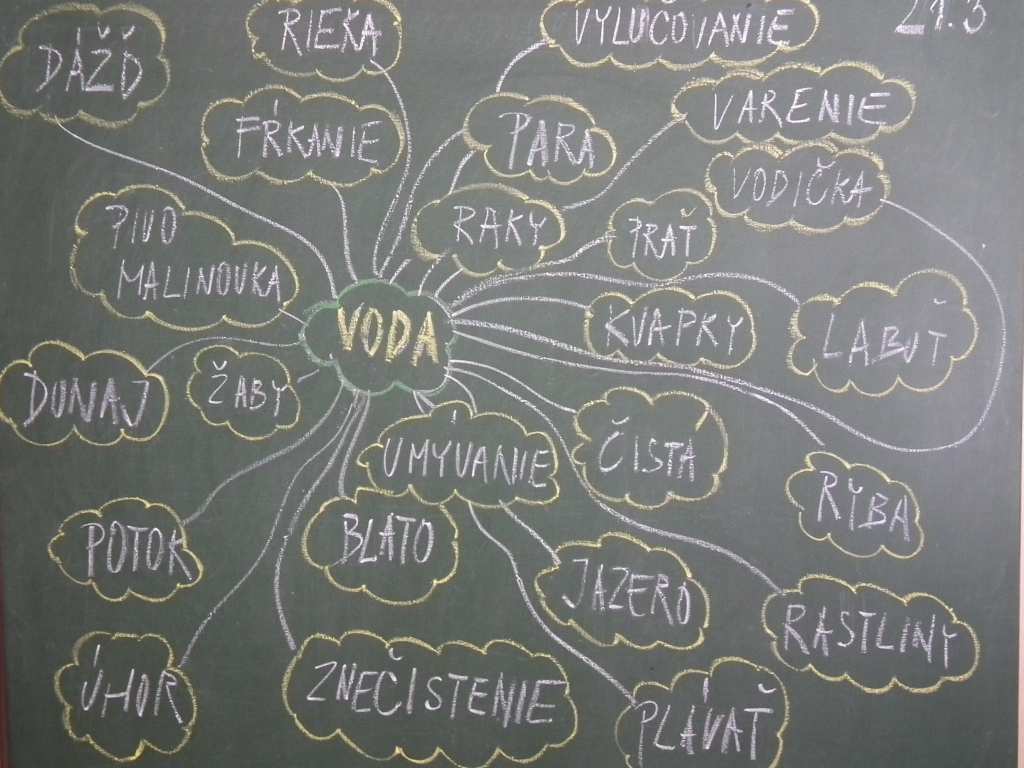 21.3
DÁŽĎ
RIEKA
VYLUČOVANIE
FŔKANIE
PARA
VARENIE
VODIČKA
PIVO
MALINOVKA
RAKY
PRAŤ
VODA
KVAPKY
LABUŤ
DUNAJ
ŽABY
UMÝVANIE
ČISTÁ
RYBA
POTOK
BLATO
JAZERO
RASTLINY
ÚHOR
ZNEČISTENIE
PLÁVAŤ